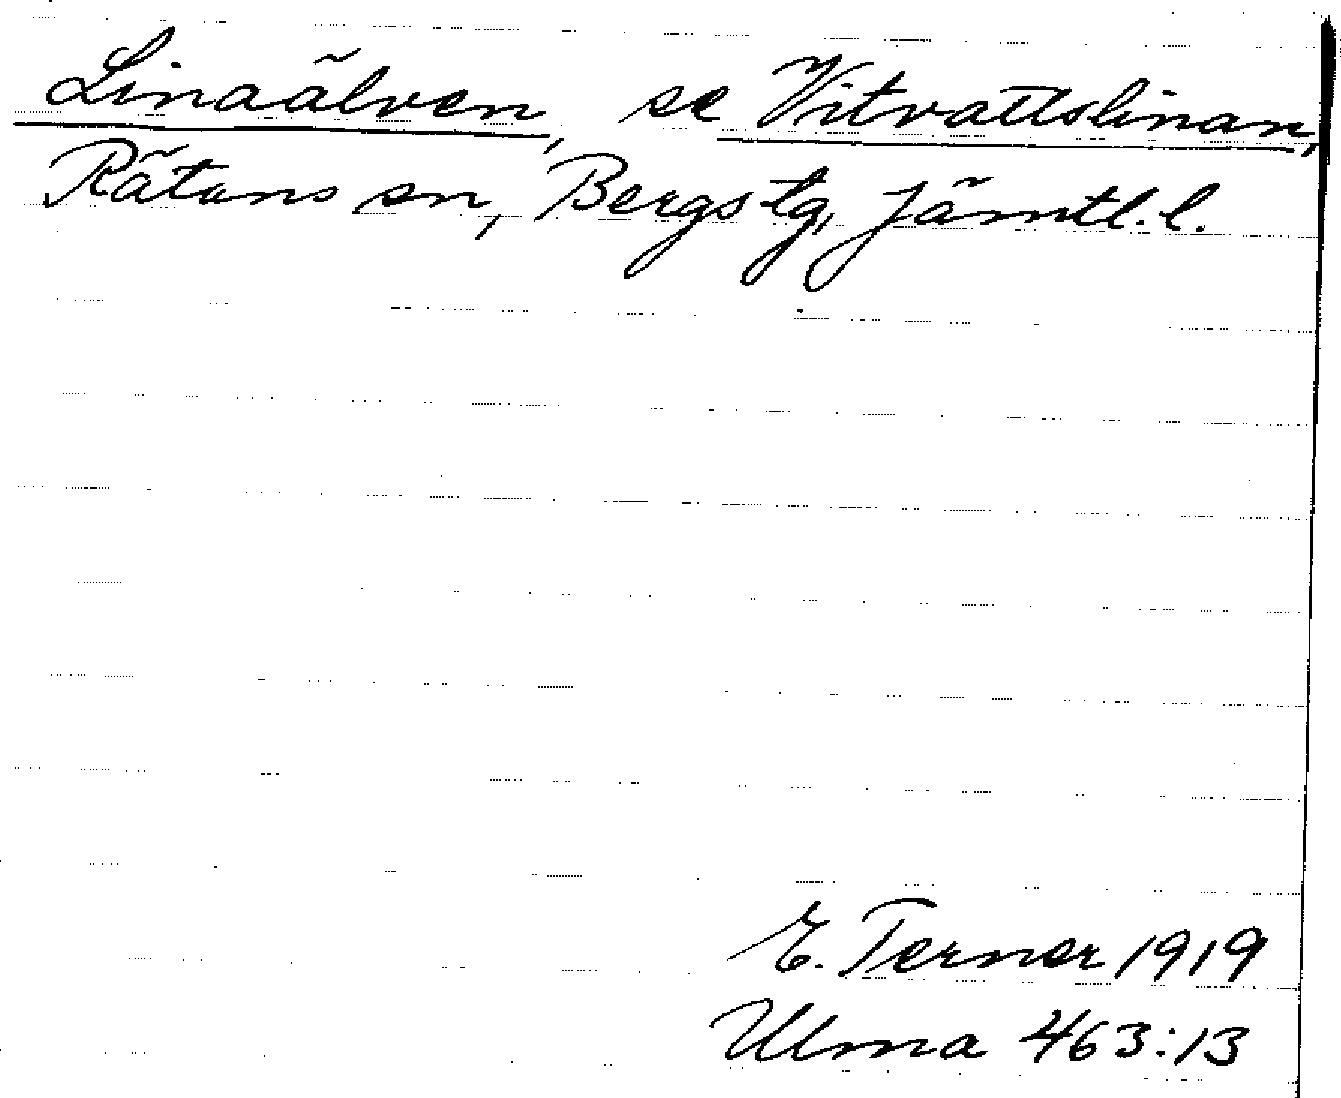 Linaälven, se Vitvattslinan,
Rätans sn, Bergs tg, Jämtl. l.
E. Terner 1919
Ulma 463:13